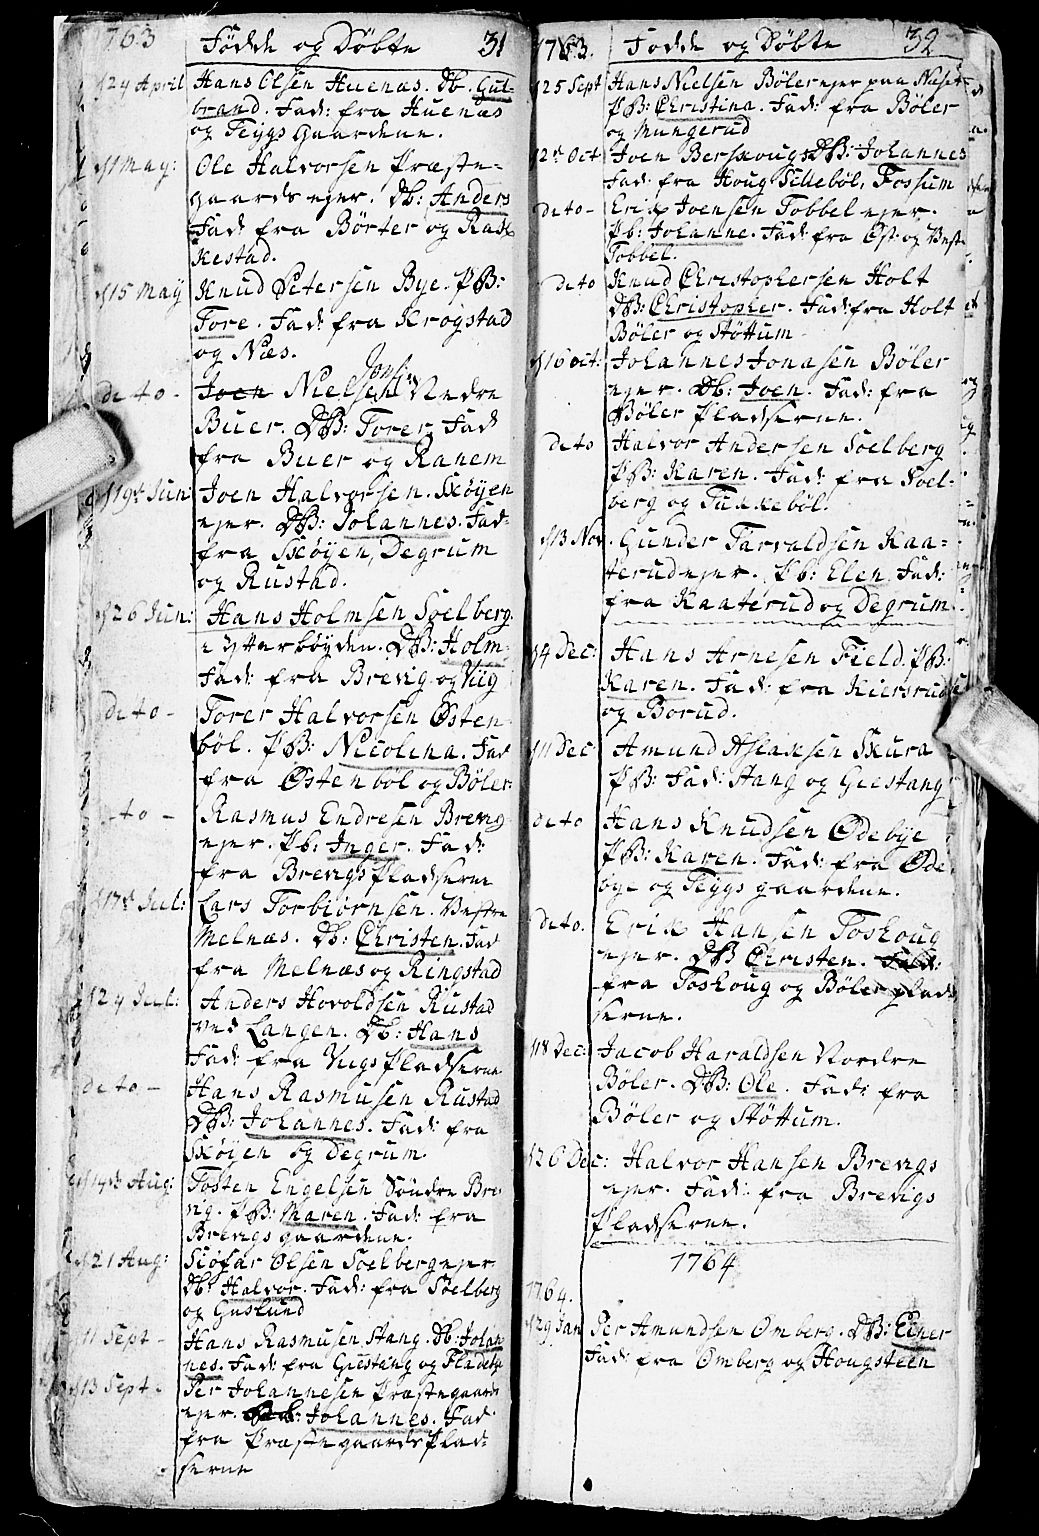 1763 Födde og Döbte 31
d 24 April Hans Olsen Huenæs. Db. Gul-
brand. Fad: fra Huenæs
og Teÿgs gaardene.
d 1 May: Ole Halvorsen Præste-
gaards ejer. Db: Anders
Fad: fra Börter og Rak-
kestad.
d 15 May Knud Petersen Bye. PB:
Tore. Fad: fra Krogstad
og Næs.
deto - Joen Nielsen Jonsen Nedre
Buer. DB: Torer. Fad
fra Buer og Ranem
d 19de Jun: Joen Halvorsen. Skøyen
ejer. DB: Johannes. Fad:
fra Skøyen, Degrum
og Rustad.
d 26 Jun: Hans Holmsen Soelberg
i Ytterbøyden. DB: Holm.
Fad: fra Brevig og Viig
deto - Torer Halvorsen Østen-
böl. PB: Nicolina. Fad
fra Østenböl og Böler:
deto - Rasmus Endresen Brevig
ejer. Pb: Inger. Fad:
fra Brevigs Pladserne
d 17de Jul: Lars Torbiørnsen. Vestre
Melnæs. Db: Christen. Fad
fra Melnæs og Ringstad
d 24 Jul: Anders Hovoldsen Rustad
ved Langen. Db: Hans
Fad: fra Vugs Pladserne
deto - Hans Rasmusen Rustad
DB: Johannes. Fad: fra
Skøyen og Degrum.
d 14de Aug: Tosten Engelsen Söndre Bre-
vig. PB: Maren. Fad: fra
Brevigs gaardene.
d 21 Aug: Siøfar Olsen Soelberg ejer
Db: Halvor. Fad: fra Soelberg
og Guslund
d 11 Sept - Hans Rasmusen Stang. Db: Johan-
nes. Fad: fra Giestang og Fladebye
d 13 Sept - Per Johannesen Præstegaards
ejer. Db: Johannes. Fad
fra Præstegaards Plad-
serne
1763. Födde og Döbte 32
d 25 Sept Hans Nielsen Böler ejer paa Næset
PB: Christina. Fad: fra Böler
og Mungerud
d 2de Oct: Joen Berskougs DB: Johannes
Fad: fra Houg Sillebøl, Fossum
deto - Erik Joensen Tobbel ejer.
Pb: Johanne. Fad: fra Øst. og Vest-
Tobbel.
deto Knud Christophersen Holt
DB: Christopher. Fad: fra Holt
Böler og Støttum
d 16 oct: Johannes Jonasen Böler
ejer. Db: Joen. Fad: fra
Böler Pladserne.
deto Halvor Andersen Soelberg
PB: Karen. Fad: fra Soel-
berg og Tukkeböl.
d 13 Nov. Gunder Tarvaldsen Kaa-
terud ejer. Pb: Elen. Fad:
fra Kaaterud og Degrum.
d 4 Dec: Hans Arnesen Field. PB:
Karen. Fad: fra Kiersrud
og Borud.
d 11 Dec: Amund Aslaksen Skura
PB: Fad: Stang og Giestang
deto Hans Knudsen Ødebye
PB: Karen. Fad: fra Øde-
bye og Teÿgs gaardene.
deto. Erik Hansen Toskoug
ejer. DB Christen. Fad:
fra Toskoug og Böler plad-
serne.
d 18 Dec: Jacob Haraldsen Nordre
Böler. DB: Ole. Fad: fra
Böler og Støttum.
d 26 Dec: Halvor Hansen Brevigs
ejer. Fad: fra Brevigs
Pladserne.
1764
1764.
d 29 Jan Per Amundsen Omberg. DB: Einer
Fad: fra Omberg og Hougsteen